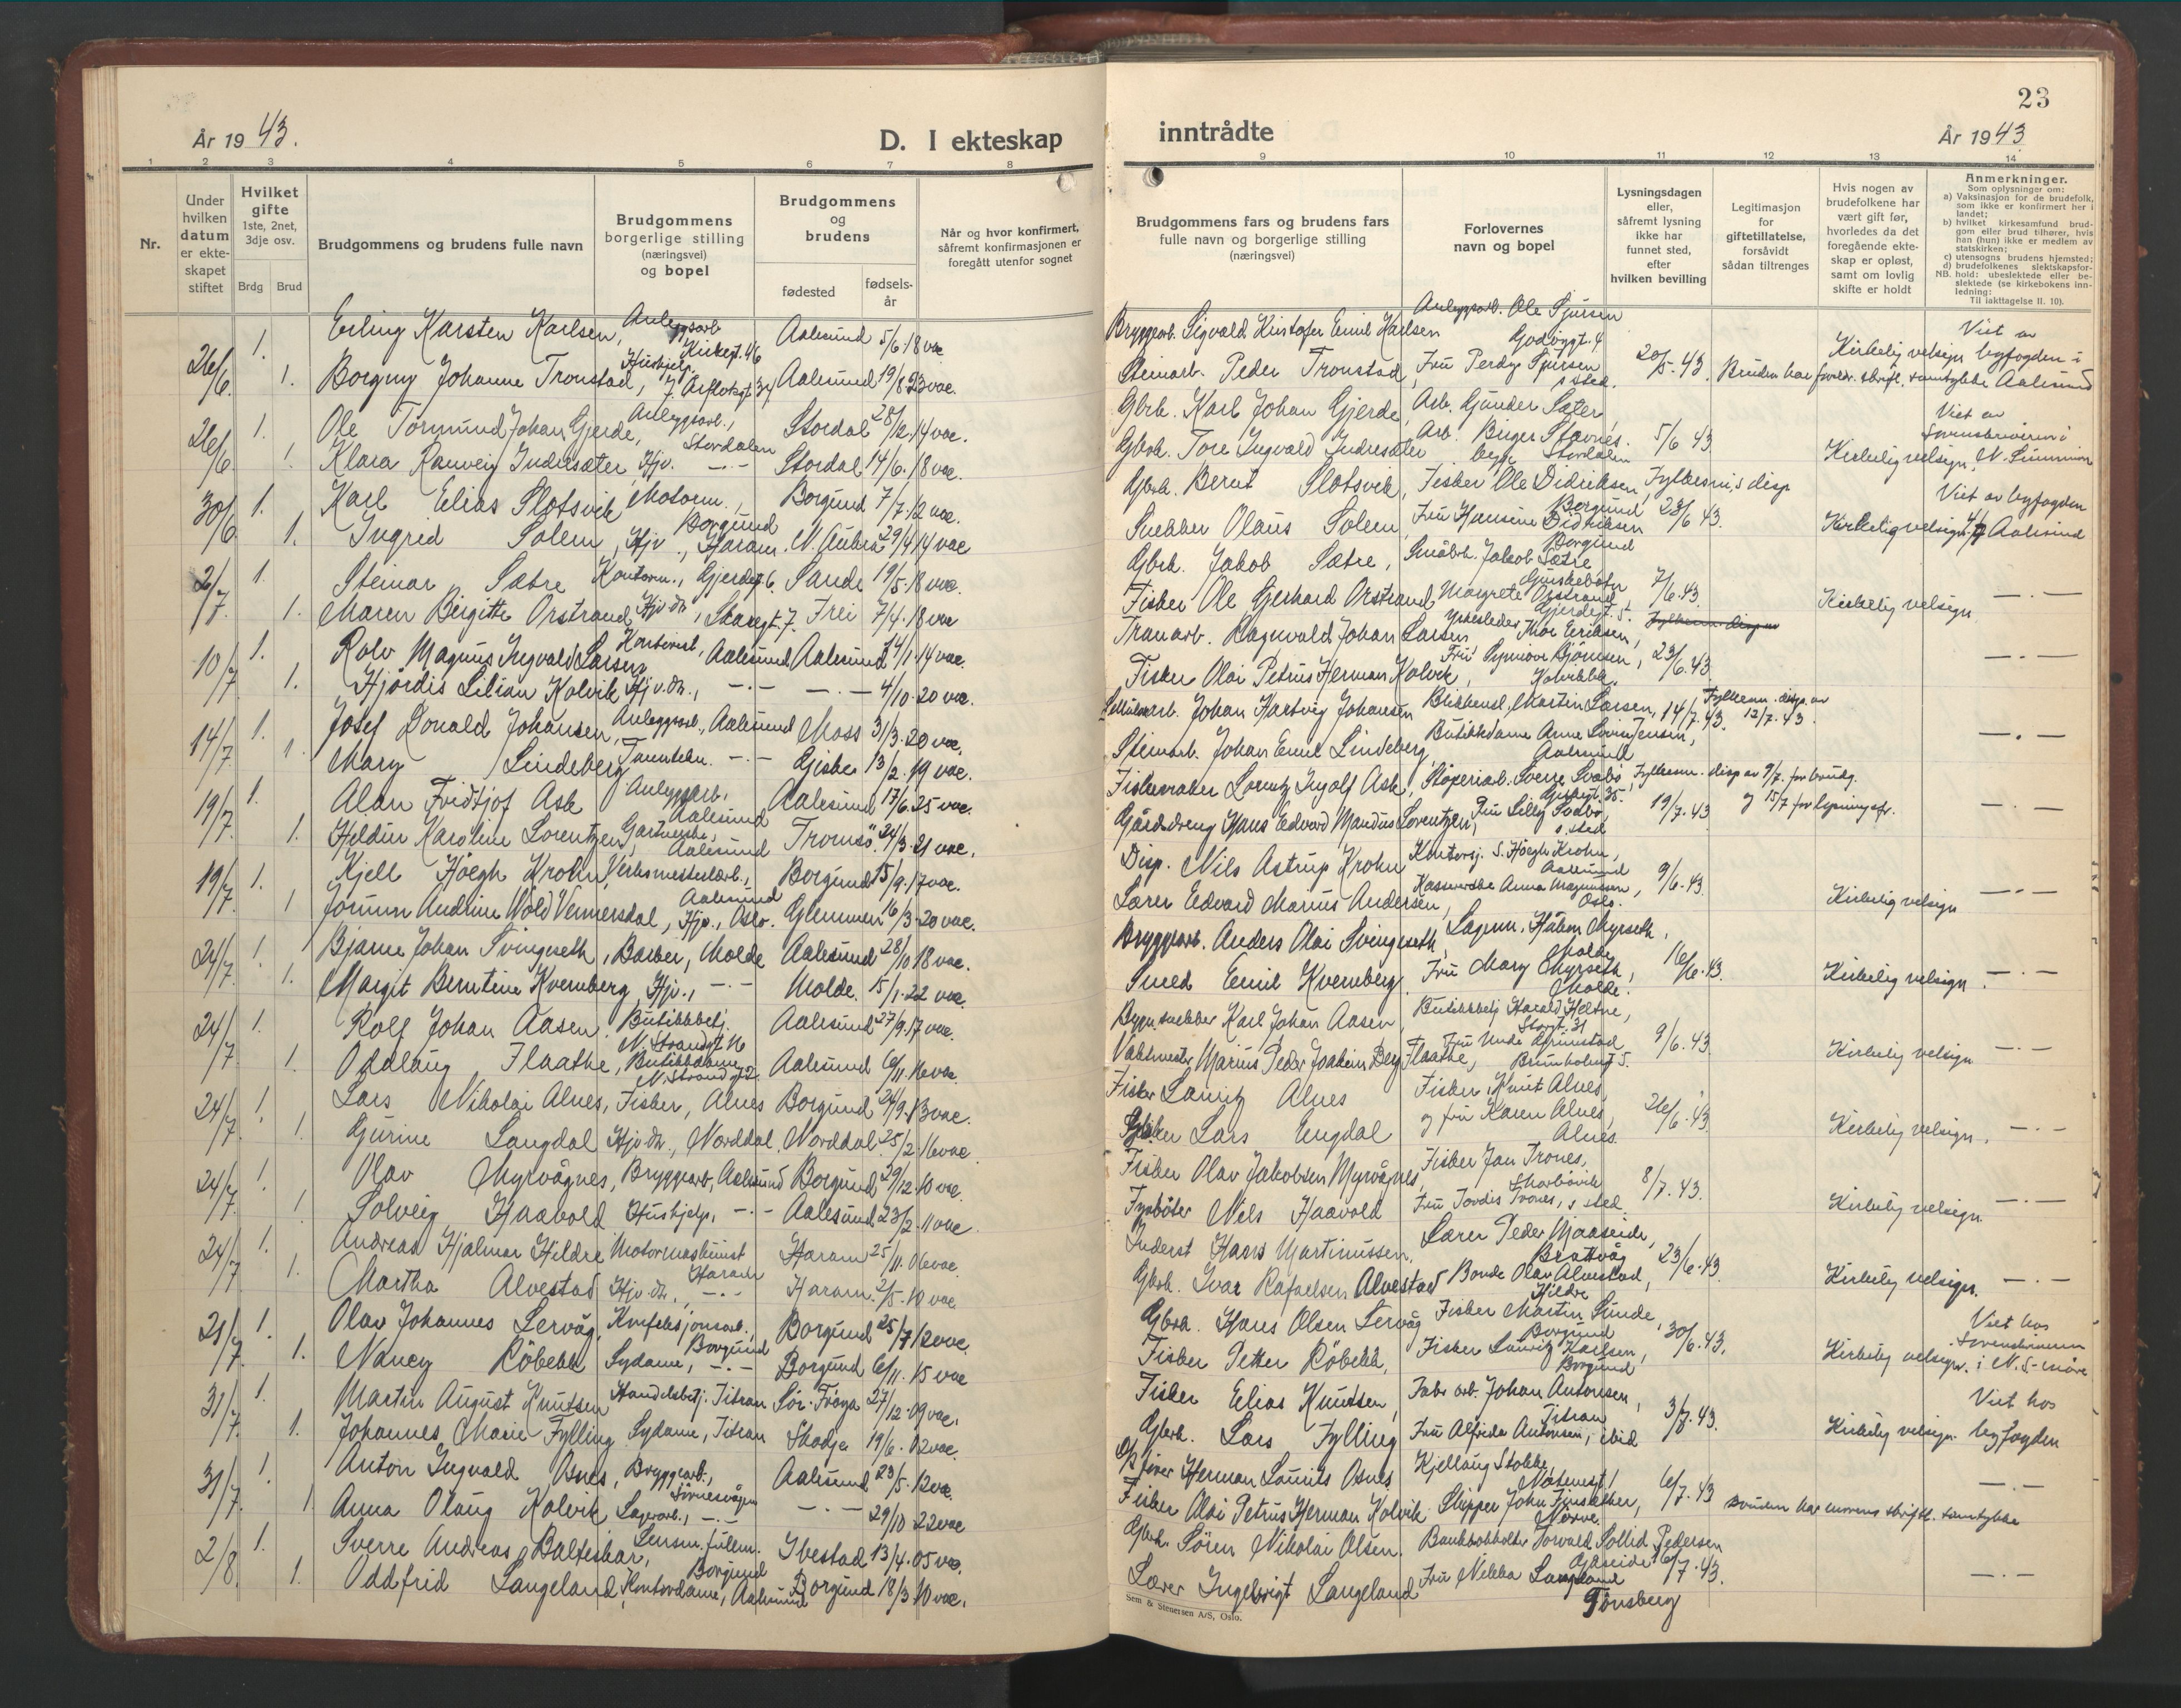 23
År 1943.
D. I ekteskap
inntrådte
År 1943
1 2 3 4 5 6 7 8
9 10 11 12 13 14
Nr.
Under hvilken datum er ekteskapet stiftet
Hvilket gifte 1ste, 2net, 3dje osv.
Brdg Brud
Brudgommens og brudens fulle navn
Brudgommens borgerlige stilling (næringsvei) og bopel
Brudgommens og brudens
fødested
fødselsår
Når og hvor konfirmert, såfremt konfirmasjonen er foregått utenfor sognet
Brudgommens fars og brudens fars fulle navn og borgerlige stilling (næringsvei)
Forlovernes navn og bopel
Lysningsdagen eller, såfremt lysning ikke har funnet sted, efter hvilken bevilling
Legitimasjon for giftetillatelse, forsåvidt sådan tiltrenges
Hvis nogen av brudefolkene har vært gift før, hvorledes da det foregående ekteskap er opløst, samt om lovlig skifte er holdt
Anmerkninger.
Som oplysninger om:
a) Vaksinasjon for de brudefolk, som ikke er konfirmert her i landet;
b) hvilket kirkesamfund brudgom eller brud tilhører, hvis han (hun) ikke er medlem av statskirken;
c) utensogns brudens hjemsted;
d) brudefolkenes slektskapsforhold: ubeslektede eller beslektede (se kirkebokens innledning:
NB.
Til iakttagelse II. 10).
26/6 1. Erling Karsten Karlsen, Anleggsarb. Kirkegt. 46 Aalesund 5/6.18 vac.
1. Borgny Johanne Tronstad, Aalesund 19/8 23 vac.
26/6 1. Ole Tormund Johan Gjerde, Anleggsarb., Stordalen Stordal 28/12.14 vac.
1. Klara Ranveig Indresæter, Hjv. -.- Stordal 14/6.18 vac.
30/6 1. Karl Elias Slotsvik Motorm., Borgund Borgund 7/7.12 vac.
1. Ingrid Solem, Hjv., Haram. 29/4 14 vac
2/7 1. Steinar Sætre Kontorm., Gjerdegt. 6. Sande 19/5.18 vac.
1. Maren Birgitte Orstrand, Hjv. dtr., Skaregt. 7. Frei 7/4.18 vac
10/7 1. Rolv Magnus Ingvald Larsen Aalesund Aalesund 24/1.14 vac.
1. Hjördis Lilian Kolvik Hjv. dtr., -.- -.- 4/10.20 vac.
14/7 1. Josef Donald Johansen, Anleggsarb., Aalesund Moss 31/3.20 vac.
1. Mary Lindeberg -.- Giske 13/2.19 vac.
19/7 1. Alan Fridtjof Ask Anleggsarb., Aalesund Aalesund 17/6.25 vac.
1. Heldur Karoline Lorentzen, Aalesund Tromsö. 24/3.21 vac.
19/7 1. Kjell Høegh Krohn, Verksmesterlærl., Aalesund Borgund 15/9.17 vac.
1 Jorunn Andrine Wold Vennersdal, Hjv., Oslo. Glemmen 16/3.20 vac.
24/7. 1. Bjarne Johan Svingeseth, Barber, Molde Aalesund 28/10 18 vac.
1. Margit Berntine Kvernberg, Hjv., -.- Molde. 15/1.22 vac.
24/7 1. Rolf Johan Aasen. Butikkbetj. N. Strandgt. 16 Aalesund 27/9.17 vac.
1. Oddlaug Flaathe, Butikkdame N. Strandgt. Aalesund 6/11.16 vac.
24/7. 1. Lars Nikolai Alnes, Fisker, Alnes Borgund 24/9.13 vac.
1. Gurine Langdal Hjv. dtr., Norddal. Norddal. 25/2.16 vac
24/7 1. Olav Myrvågnes, Bryggearb., Aalesund Borgund 29/12.10 vac.
1 Solveig Haavold Hushjelp, -.- Aalesund 23/2.11 vac.
24/7 1. Andreas Hjalmar Hildre Motormaskinist Haram Haram 25/11.06 vac.
1. Martha Alvestad Hjv. dtr., -.- Haram. 2/5.10 vac.
21/7. 1. Olav Johannes Lervåg, Konfeksjonsarb., Borgund Borgund 25/7 12 vac
1. Nancy Röbekk Sydame, -.- Borgund 6/11.15 vac
31/7. 1. Martin August Knutsen Handelsbetj. Titran Sör-Fröya 27/12.09 vac.
1. Johannes Marie Fylling Sydame, Titran Skodje 19/6.02 vac.
31/7. 1. Anton Ingvald Osnes, Bryggearb., Aalesund 23/5.12 vac.
1. Anna Olaug Kolvik Lagerarb., -.- -.- 29/10 22 vac
2/8. 1. Sverre Andreas Balteskar, Lensm. fullm. Borgund Ibestad 13/4.05 vac.
1. Oddfrid Langeland, Kontordame, Aalesund Borgund 18/3 10 vac.
Bryggearb. Sigvald Kristofer Emil Karlsen Anleggsarb. Ole Sjursen Vict av
Steinarb. Peder Tronstad, Fru Perdy Sjursen s sted. 20/5.43. Bruden har foreldr. skriftl. samtykke Kirkelig velsign byfogden i Aalesund
Gbrk. Karl Johan Gjerde, Arb. Gunder Sæter, Vict av
Gbrk. Tore Ingvald Indresæter Arb. Birger Stavnes. begge Stordalen 5/6 43. Kirkelig velsign, Sorenskriveren i N. Sunnmöre
Gbrk. Bernt Slotsvik, Fisker Ole Didriksen, Borgund Fylkesm.s disp. Vict av byfogden
Snekker Olaus Solem, Fru Hansine Didriksen Borgund 23/6 43. Kirkelig velsign. i Aalesund
Gbrk. Jakob Sætre, Småbrk. Jakob Sætre
Fisker Ole Gerhard Orstrand Margrete Orstrand Gjerdegt. 5. 7/6.43. Kirkelig velsign. -.-
Tranarb. Ragnvald Johan Larsen Yrkesleder Thor Eriksen,
Fisker Olai Petrus Herman Kolvik, Fru Synnöve Björnsen, 23/6.43. -.-
Johan Hartvig Johansen Blikkensl. Martin Larsen, 14/7.43. Fylkesm. disp. av 12/7.43.
Steinarb. Johan Emil Lindeberg, Butikkdame Anne Lovise Jensen, Aalesund -.-
Fiskemaker Lorentz Ingolf Ask, Stöperiarb. Sverre Svabö, Fylkesm. disp av 9/7. for brudg.
Gårdsdreng Hans Edvard Mandus Lorentzen, Fru Lilly Svabö, s. sted 19/7.43 og 15/7 for lysningsfr. -.-
Disp. Nils Astrup Krohn Kontorsj. S. Høegh Krohn, Aalesund
Lærer Edvard Marius Andersen, Kassererske Anna Magnussen, Oslo. 9/6.43. Kirkelig velsign -.-
Bryggearb. Anders Olai Svingeseth, Lagerm. Håkon Myrseth, Molde
Smed Emil Kvernberg. Fru Mary Myrseth, Molde. 16/6.43. Kirkelig velsign. -.-
Bygn.snekker Karl Johan Aasen, Butikkbetj. Harald Heltne, Storgt. 31
Vaktmester Marius Peder Joakim Berg Flaathe, Brunholmgt 5. 9/6.43. Kirkelig velsign -.-
Fisker Lauritz Alnes Fisker Knut Alnes
Lars Engdal og fru Karen Alnes, Alnes. 26/6.43. Kirkelig velsign. -.-
Fisker Olav Jakobsen Myrvågnes, Fisker Jan Trones, Skarbövik
Fyrböter Nils Haavold Fru Jordis Trones, s sted. 8/7.43. Kirkelig velsign. -.-
Inderst Hans Martinussen, Lærer Peder Maaseide, Brattvåg
Gbrk. Ivar Rafaelsen Alvestad Bonde Olav Alvestad, Hildre 23/6.43. Kirkelig velsign. -.-
Gbrk. Hans Olsen Lervåg Fisker Martin Sunde, Borgund Vict hos
Fisker Petter Röbekk, Fisker Lauritz Karlsen, Borgund 30/6.43. Kirkelig velsign. Sorenskriveren i N. S-möre
Fisker Elias Knutsen, Fabr. arb. Johan Antonsen, Titran Vict hos
Gbrk. Lars Fylling Fru Alfrida Antonsen, ibid 3/7.43. Kirkelig velsign. byfogden
Herman Laurits Osnes Kjellaug Stokke, -.-
Fisker Olai Petrus Herman Kolvik Skipper John Nörve. 6/7.43 Bruden har morens skriftl. samtykke
Gbrk. Sören Nikolai Olsen. Bankbokholder Torvald Sollid Pedersen
Lærer Ingebrigt Langeland Fru Nekka Langeland Tönsberg 6/7.43. -.-
Sem & Stenersen A/S, Oslo.